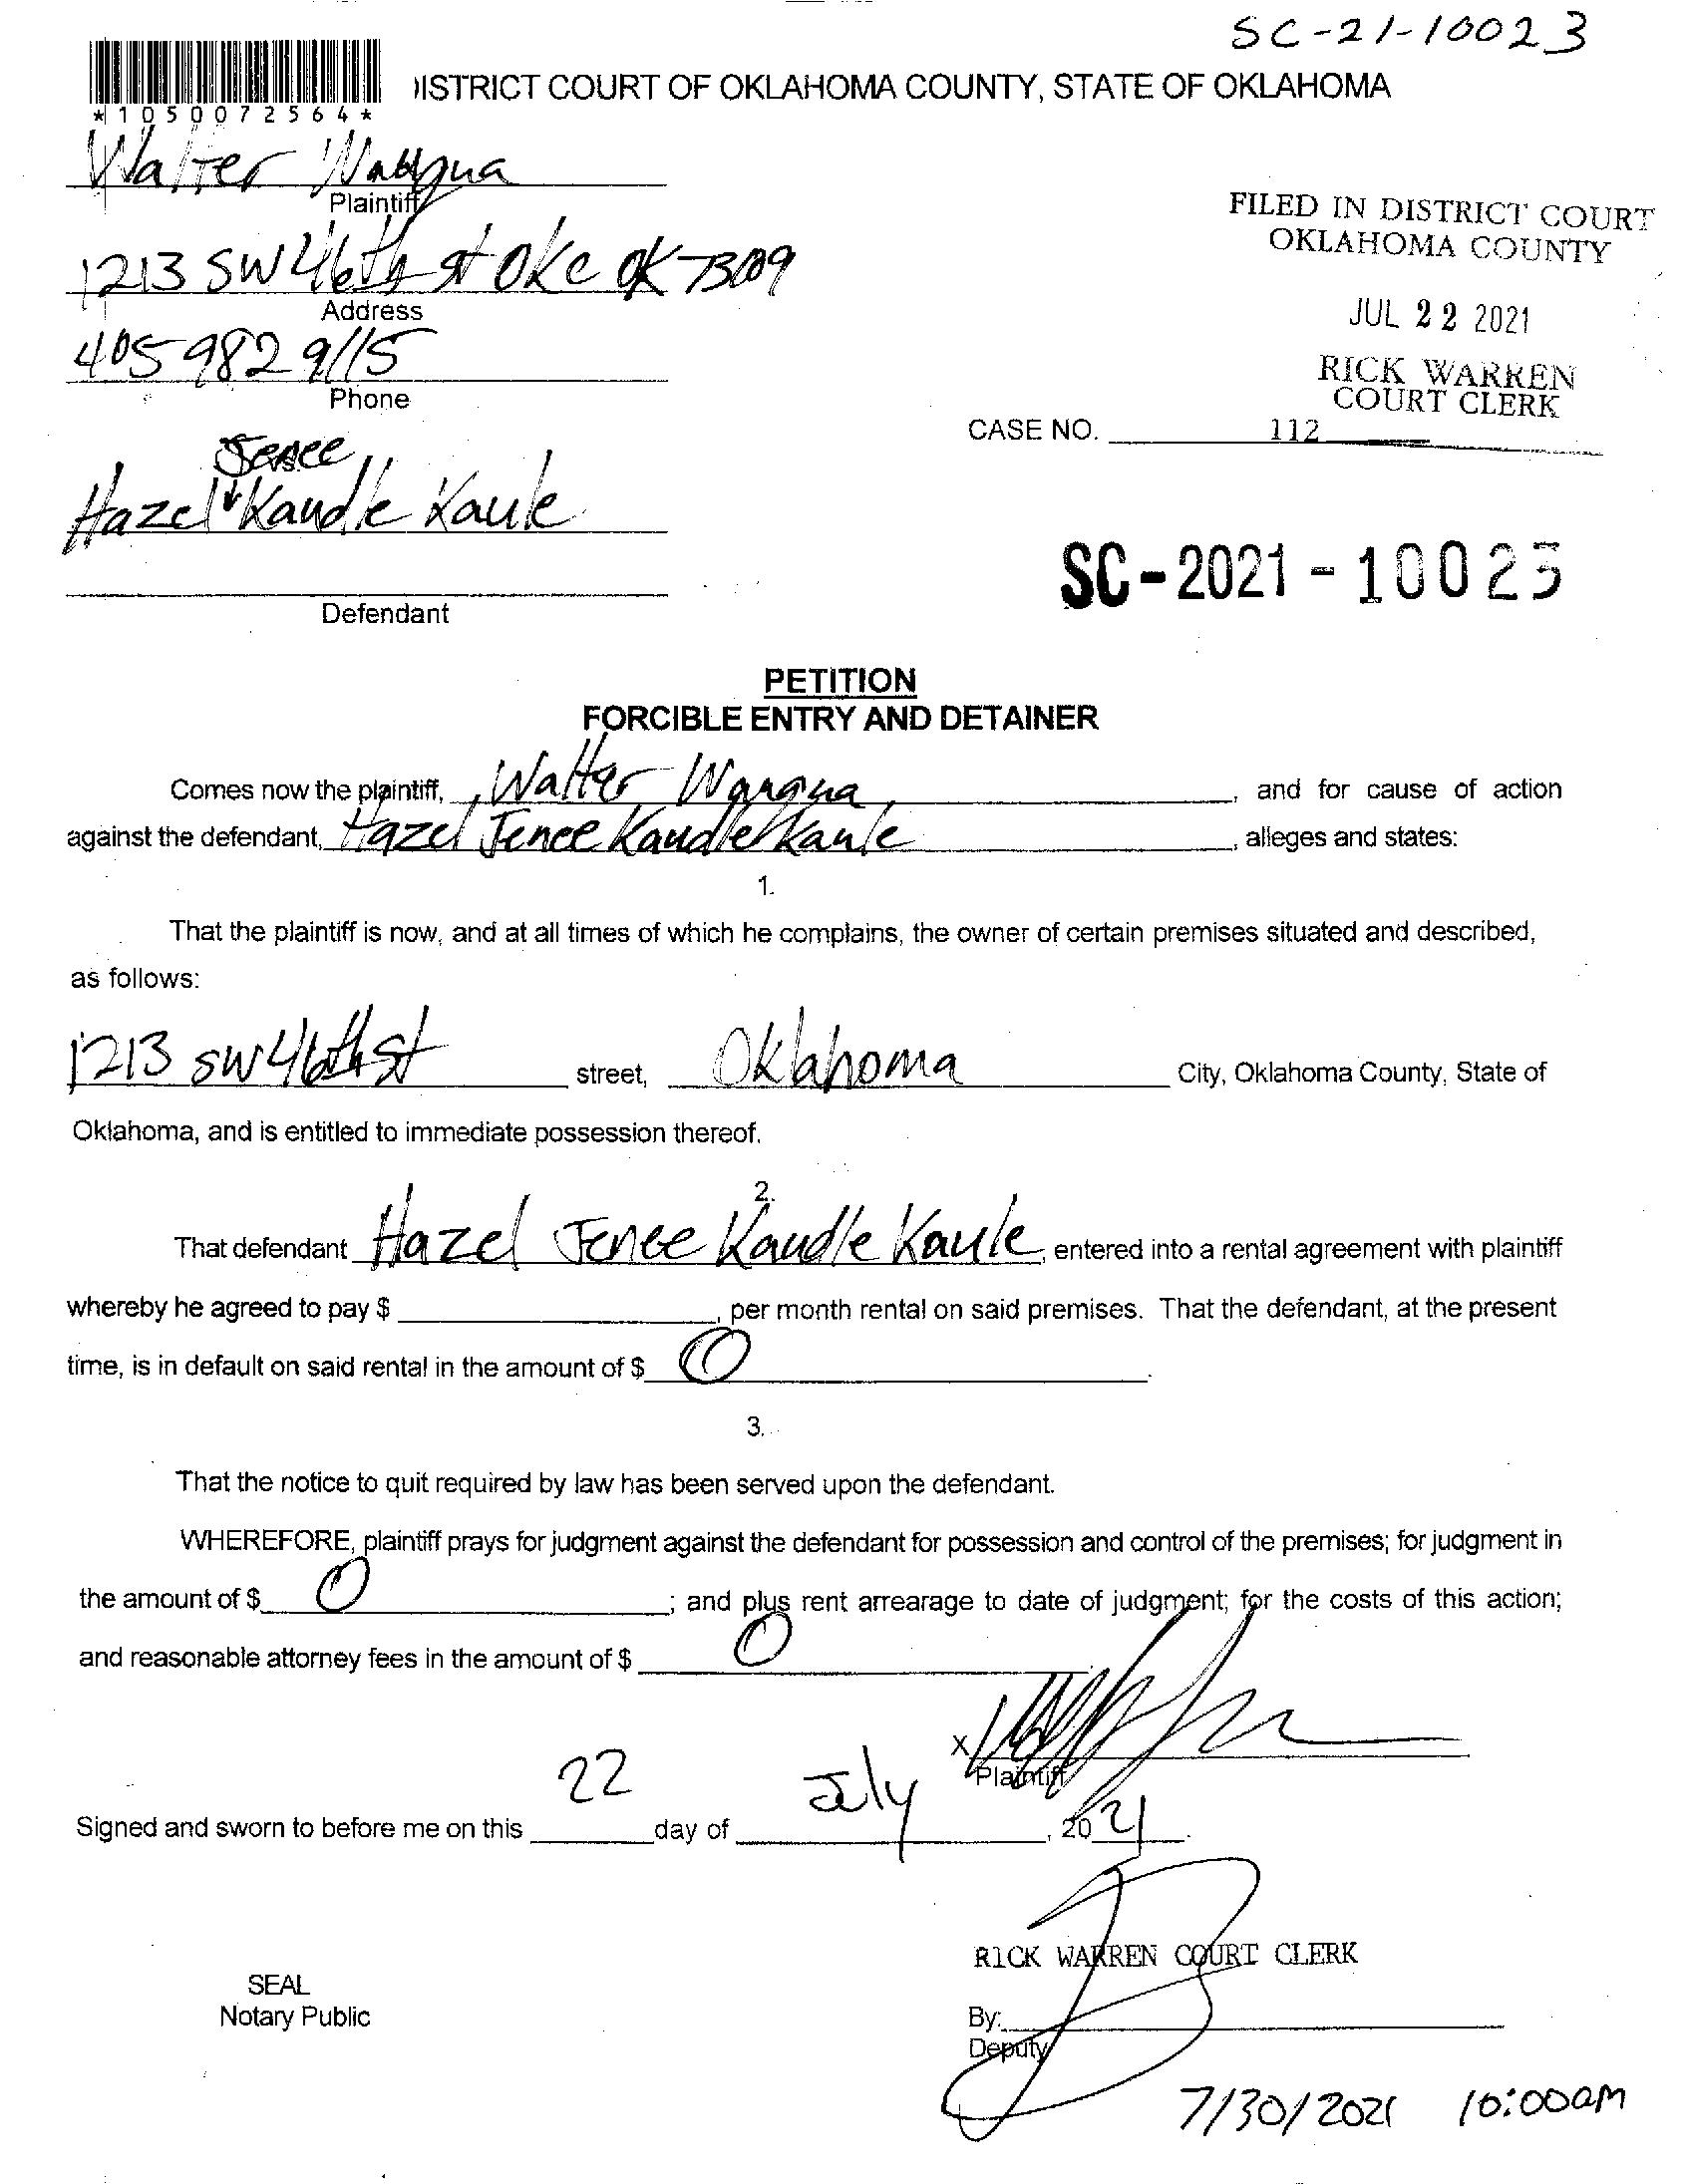 SC-21-10023
*1050072564*
DISTRICT COURT OF OKLAHOMA COUNTY, STATE OF OKLAHOMA
Walter
Plaintiff
1213 SW 46th st OKC OK 73109
Address
405 982 9115
Phone
FILED IN DISTRICT COURT
OKLAHOMA COUNTY
JUL 22 2021
RICK WARREN
COURT CLERK
CASE NO. 112
Jenee
Hazel Kaudle Kaule
Defendant
SC-2021-10023
PETITION
FORCIBLE ENTRY AND DETAINER
Comes now the plaintiff, Walter , and for cause of action
against the defendant, Hazel Jenee Kaudle Kaule, alleges and states:
1.
That the plaintiff is now, and at all times of which he complains, the owner of certain premises situated and described,
as follows:
1213 SW 46th st street, Oklahoma City, Oklahoma County, State of
Oklahoma, and is entitled to immediate possession thereof.
2.
That defendant Hazel Jenee Kaudle Kaule, entered into a rental agreement with plaintiff
whereby he agreed to pay $ , per month rental on said premises. That the defendant, at the present
time, is in default on said rental in the amount of $ 0.
3.
That the notice to quit required by law has been served upon the defendant.
WHEREFORE, plaintiff prays for judgment against the defendant for possession and control of the premises; for judgment in
the amount of $ 0; and plus rent arrearage to date of judgment; for the costs of this action;
and reasonable attorney fees in the amount of $ 0.
X
Plaintiff
Signed and sworn to before me on this 22 day of July, 2021.
RICK WARREN COURT CLERK
SEAL
Notary Public
By:
Deputy
7/30/2021 10:00am